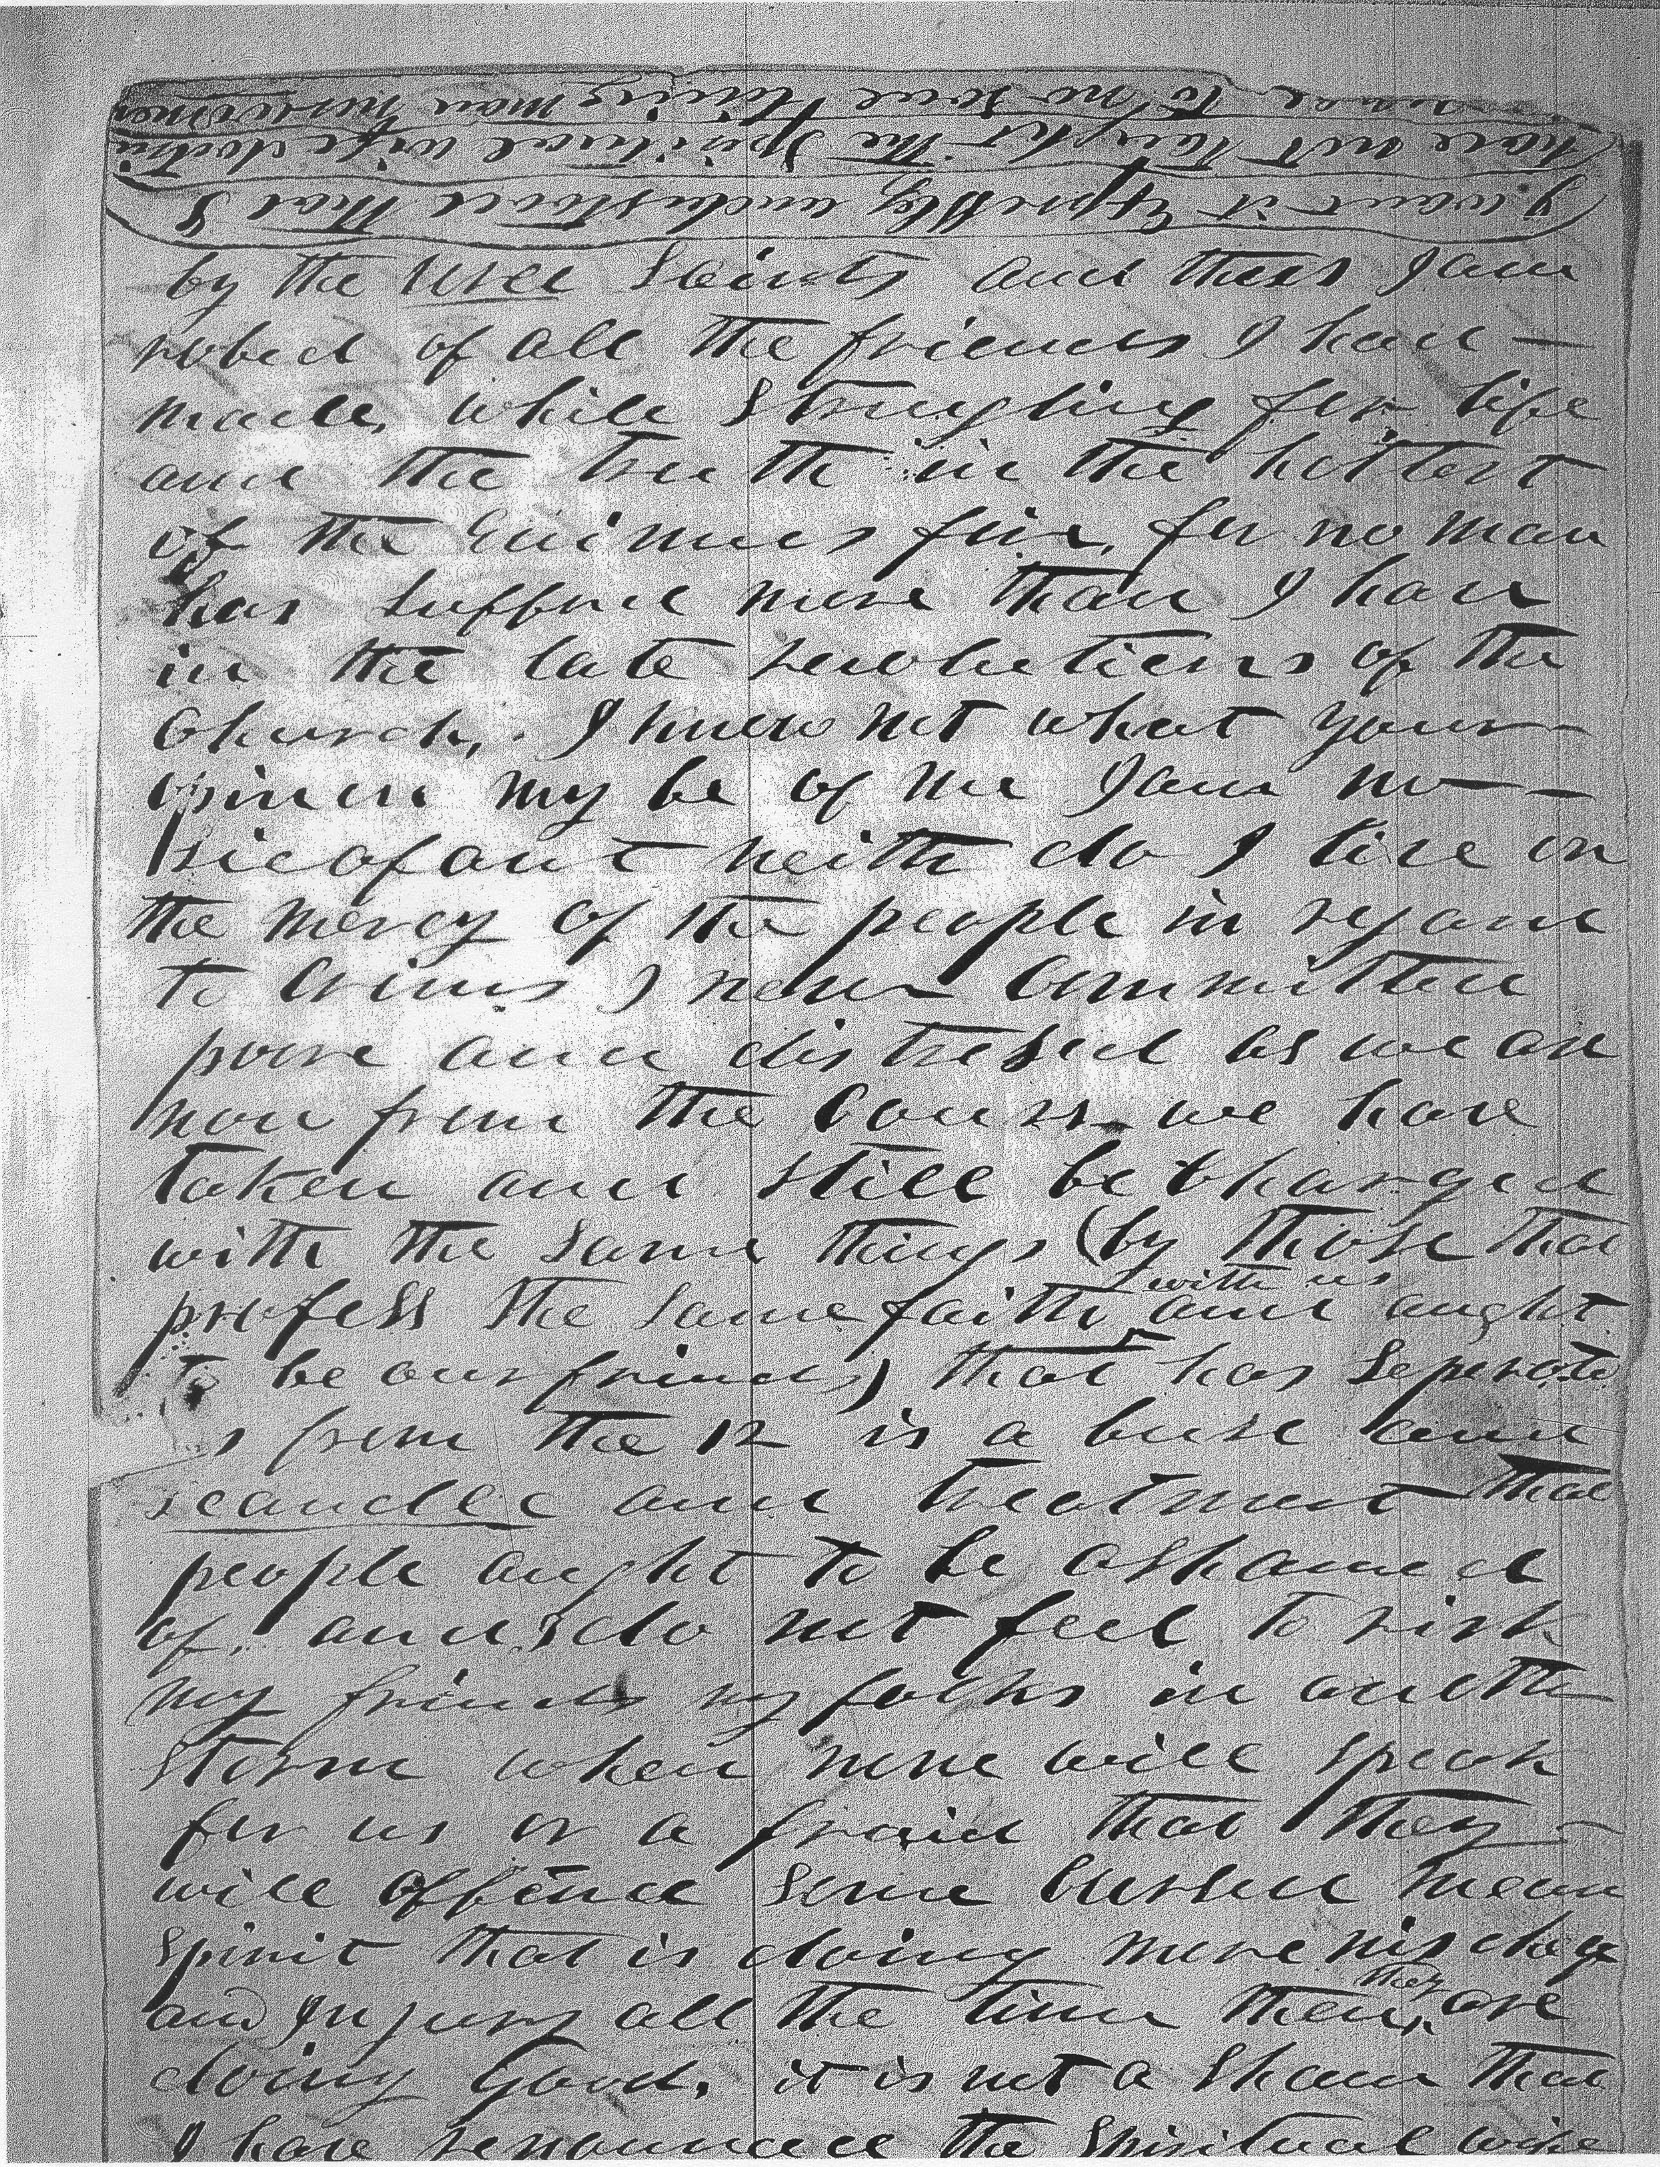 I want it Expressly understood that I
have not taught the Spiritual wife doctrin
to no soul living man nor womon
by the Wree Saints and thus I am
robed of all the friends I have —
made, while Strugling for life
and the truth in the hottest
of the Enimies fire, for no man
has suffred more than I have
in the late revolutions of the
Church, I know not what your —
opinion my be of me I am no —
sicofant neith do I live on
the mercy of the people in regard
to Crimes I never Committed
poore and distresed as we are
now from the Cours we have
taken and still be tharged
with the same things (by those that
profess the same faith with us and aught
to be our friends) that has seperate
s from the 12 is a buse and
scandle and treatment that
people aught to be ashamed
of, and I do not feel to risk
my friends my folks in anoth
Storm when none will speak
for us or a fraid that they —
will offend some cursed mean
Spirit that is doing more mischeg
and Injury all the time then they are
doing good, it is not a Sham that
I have renounced the Spiritual wife